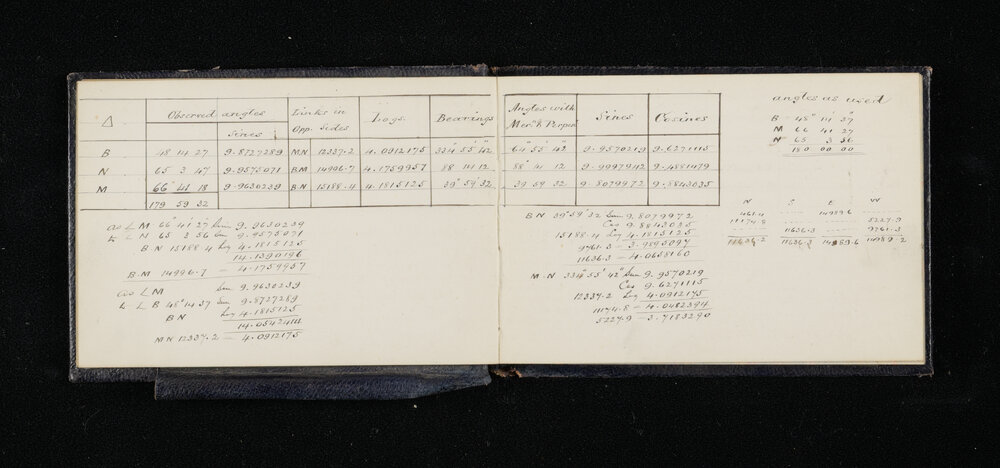 △ Observed angles Links in Opp. Sides Logs. Bearings
Sines
B 48 14 27 9.8727289 MN 12337.2 4.0912175 334° 55' 42"
N 65 3 47 9.9575071 BM 14996.7 4.1759957 88 41 12
M 66 41 18 9.9630239 BN 15188.4 4.1815125 39° 59 32
179 59 32
as L M 66° 41' 27" Sine 9.9630239
to L N 65 3 56 Sin 9.9575071
BN 15188.4 Log 4.1815125
14.1390196
B.M 14996.7 — 4.1759957
as L M Sin 9.9630239
to L B 48° 14 37 Sin 9.8727289
BN Log 4.1815125
14.0542414
MN 12337.2 — 4.0912175
Angles with Mer. & Perpen Sines Cosines
64° 55' 42" 9.9570219 9.6271115
88° 41 12 9.9997942 9.4881479
39 59 32 9.8079972 9.8843035
BN 39° 59' 32 Sin 9.8079972
Cos 9.8843035
15188.4 Log 4.1815125
9761.3 — 3.9895097
11636.3 — 4.0658160
M.N 334° 55' 42" Sin 9.9570219
Cos 9.6271115
12337.2 Log 4.0912175
11174.8 — 4.0482394
5227.9 — 3.7183290
angles as used
B — 48° 14' 37
M 66 41 27
N 65 3 56
180 00 00
N S E W
461.4 14989.6
11174.8 5227.9
11636.3 9761.3
11636.2 11636.3 14989.6 14989.2